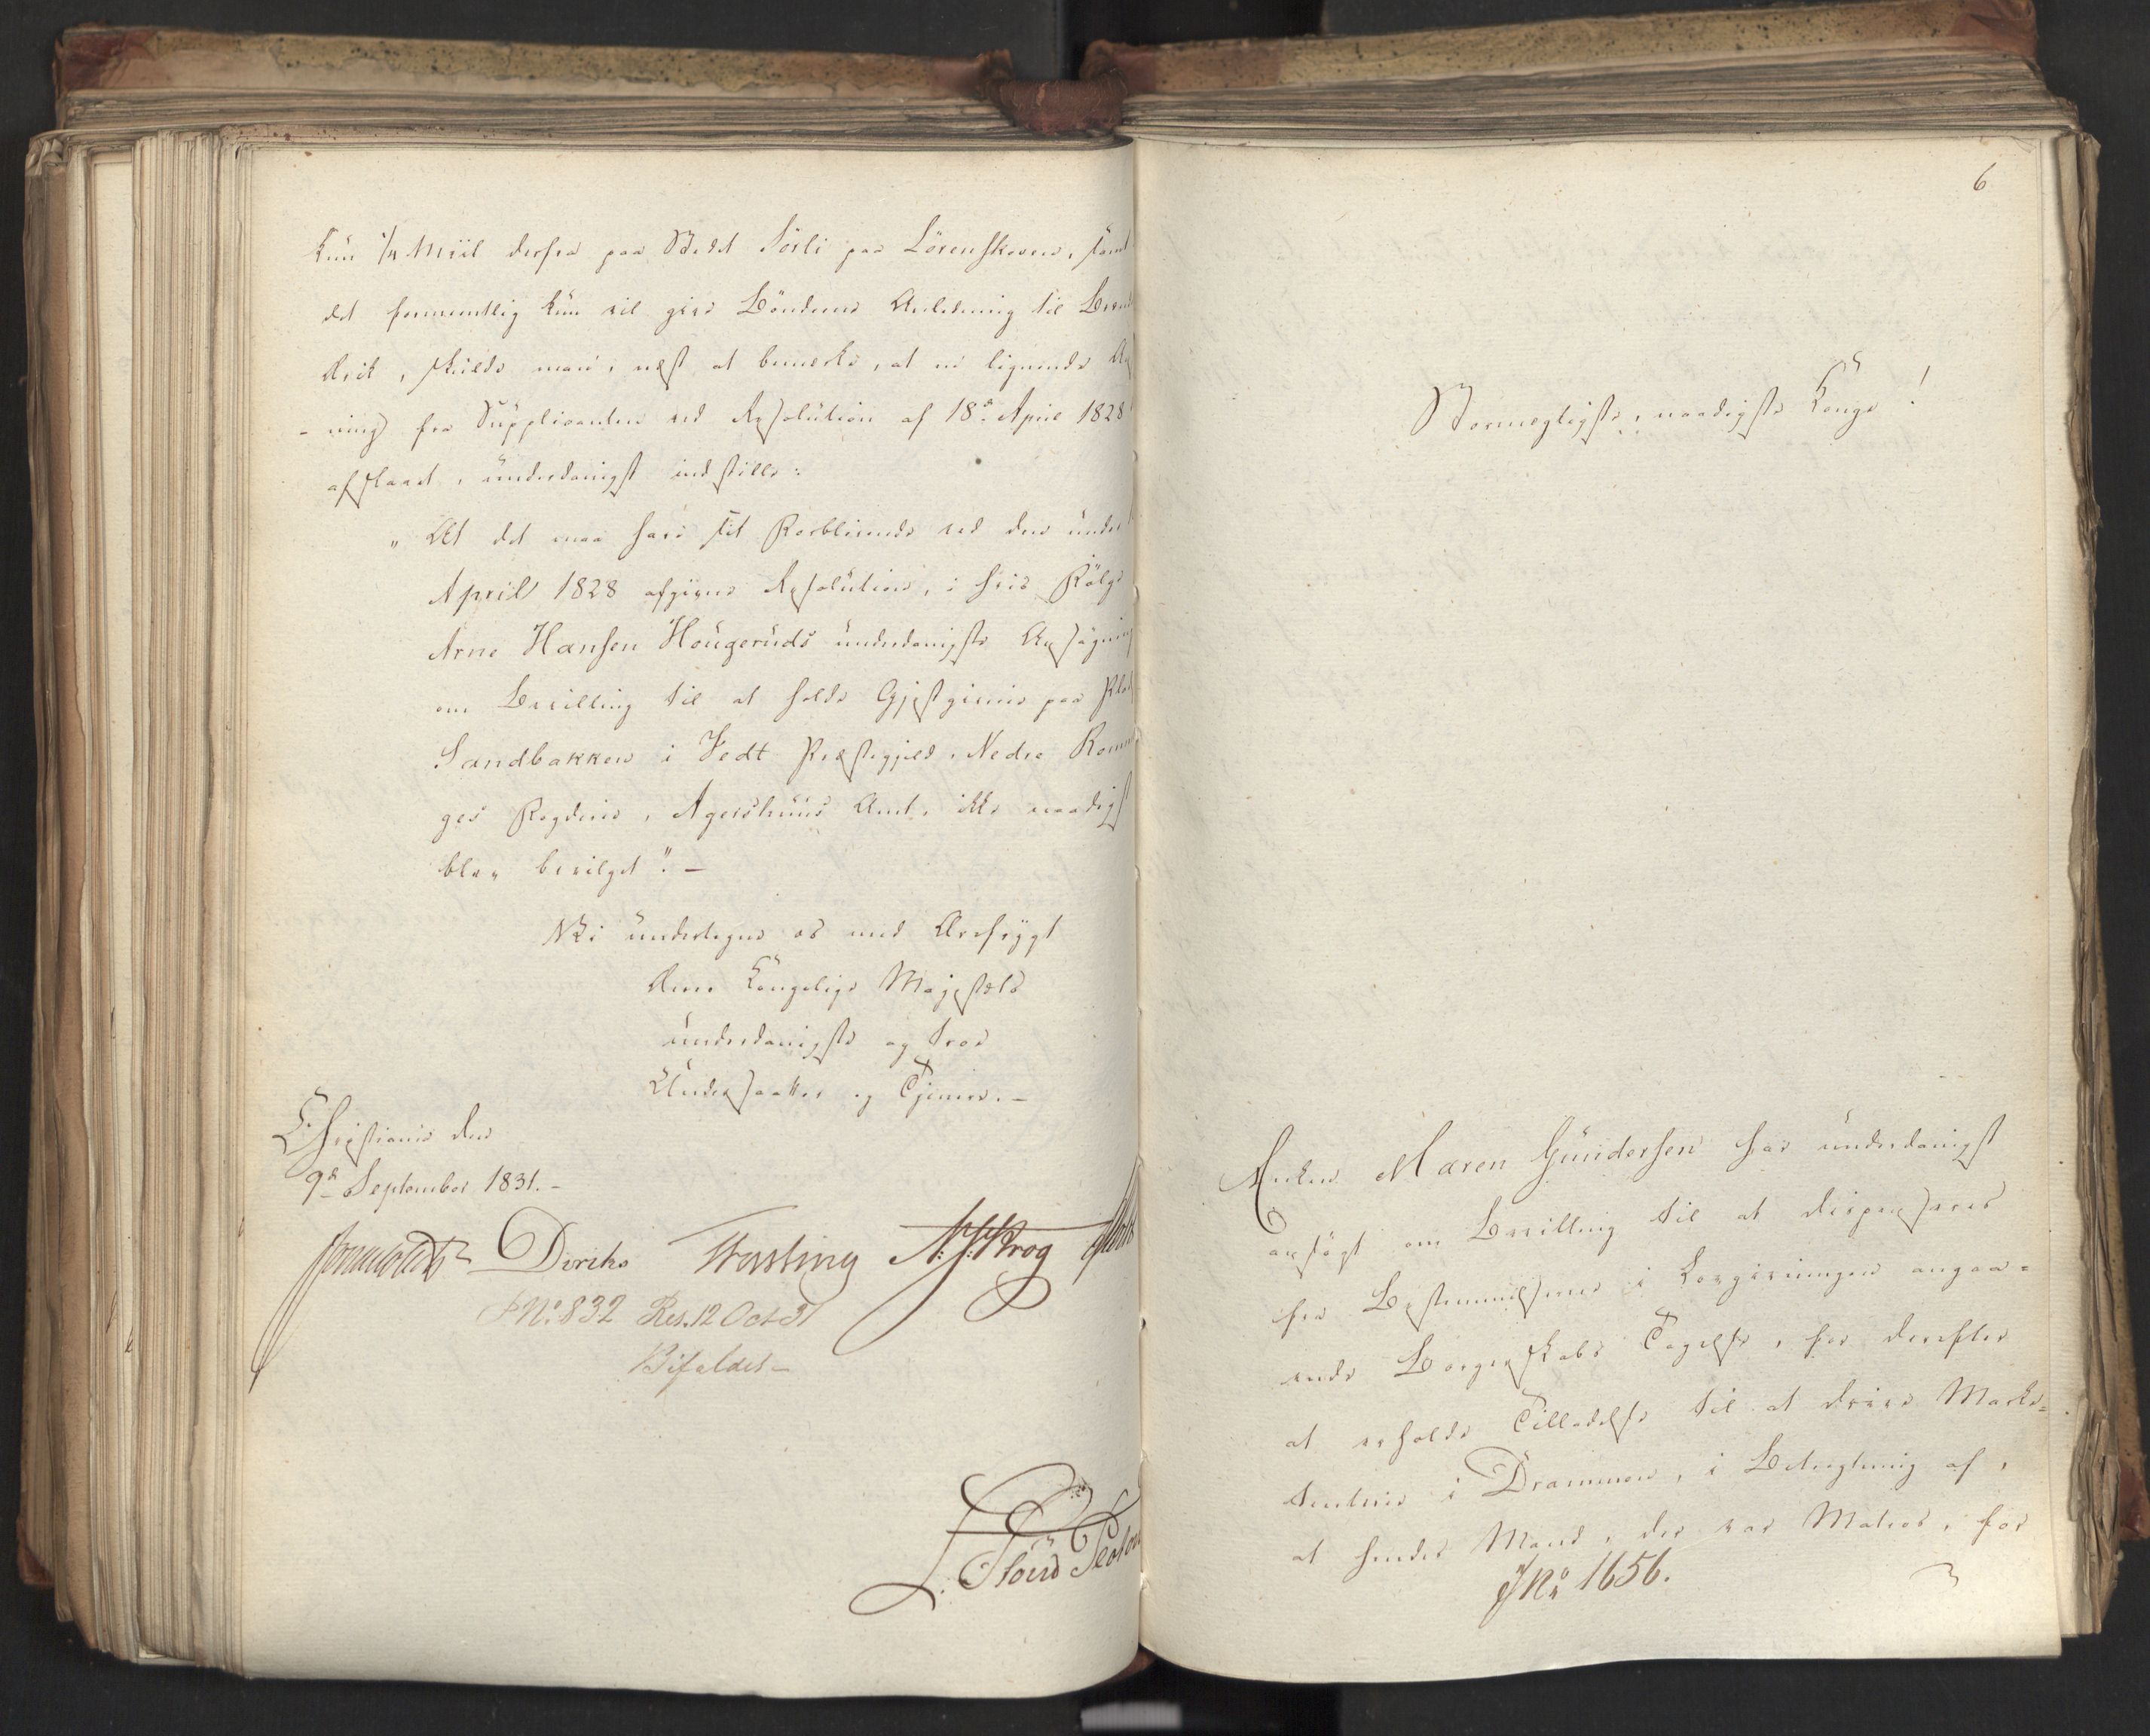 Kun 1/4 Miil derfra paa Stedet Sörli paa Lörenskoven, samt
det formentlig kun vil give Bönderne Anledning til
drik, skulde man, næst at bemærke, at en lignende
ning fra Supplicanten ved Resolution af 18de April 1828
afslaaet, underdanigst indstille:
"At det maa have sit Forblivende ved den under
April 1828 afgivne Resolution, i hvis Fölge
Arne Hansen Hougeruds underdanigste Ansøgning
om Bevilling til at holde Gjæstgiverie paa
Sandbakken i Fedt Præstegjeld, Nedre Rom
ges Fogderie, Agershuus Amt, ikke naadigst
blev bevilget". -
Vi undertegne os med Ærefrygt
Deres Kongelige Majestæts
underdanigste og troe
Undersaatter og Tjenere. -
Christiania den
9de September 1831. -
Diriks Fasting Krog
No. 832 Res. 12 Oct 31
Bifaldes -
6
Stormægtigste, naadigste Konge!
Enken Maren Gundersen har underdanigst
ansögt om Bevilling til at dispenseres
fra Bestemmelserne i Lovgivningen angaa=
ende Borgerskabs Tagelse, for derefter
at erholde Tilladelse til at drive Marke=
tenterie i Drammen, i Betragtning af,
at hendes Mand, der var Matros, for
JNo 1656.